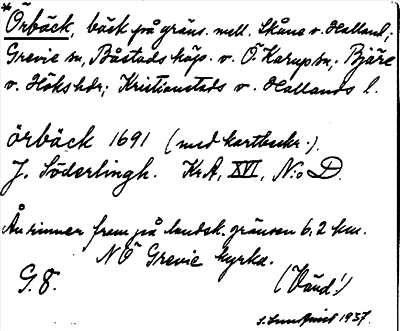 * Örbäck, bäck på gräns. mell. Skåne o. Halland;
Grevie sn, Båstads köp. o. Ö. Karup sn; Bjäre
o. Höks hdr; Kristianstads o. Hallands l.
örbäck 1691 (med kartbeskr.).
J. Söderlingh. KrA, XVI, N:o D.
Ån rinner fram på landsk. gränsen 6,2 km.
NÖ Grevie kyrka.
G. 8. (Vänd!)
S. Lundquist 1937.